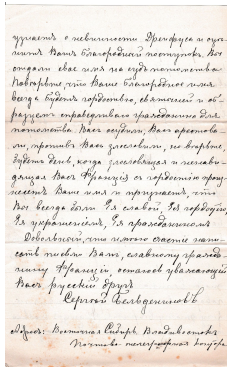 узнаетъ о невинности Дрейфуса и оцѣ-
нитъ Вашъ благородный поступокъ. Вы
отдали свое имя на судъ потомства.
Повѣрьте, что Ваше благородное имя
всегда будетъ гордостью, святыней и об-
разцемъ справедливаго гражданина для
потомства. Васъ осудили, Васъ арестова-
ли, противъ Васъ злословили, но вѣрьте
будетъ день, когда злословящая и ненави-
дящая Васъ Франція съ гордостію прои-
несетъ Ваше имя и признаетъ, что
Вы всегда были Ея славой, Ея гордостью
Ея украшеніемъ, Ея гражданиномъ.
Довольный, что имѣю счастіе напи-
сать письмо Вамъ, славному гражда-
нину Франціи, остаюсь уважающій
Васъ русскій другъ
Сергѣй
Адресъ: Восточная Сибирь. Владивостокъ
Почтово-телеграфная контора